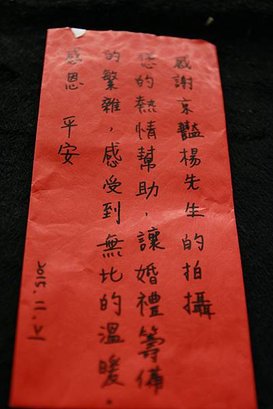 感謝京豔楊先生的拍攝
您的熱情幫助，讓婚禮籌備
的繁雜，感受到無比的溫暖。
感恩 平安
2015.11.21